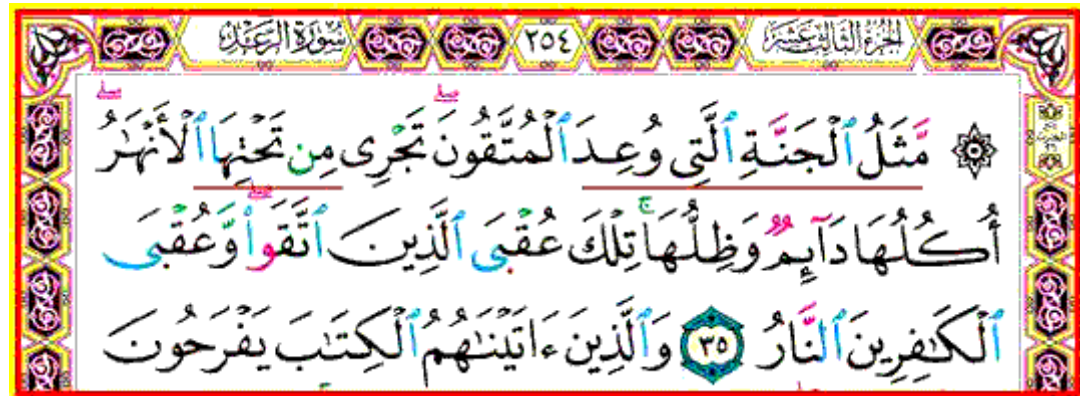 سُورَةُ الرَّعْدِ ٢٥٤ الجُزْءُ الثَّالِثَ عَشَرَ
۞ مَّثَلُ ٱلْجَنَّةِ ٱلَّتِى وُعِدَ ٱلْمُتَّقُونَۖ تَجْرِى مِن تَحْتِهَا ٱلْأَنْهَٰرُۖ
أُكُلُهَا دَآئِمٌ وَظِلُّهَاۚ تِلْكَ عُقْبَى ٱلَّذِينَ ٱتَّقَوا۟ۖ وَّعُقْبَى
ٱلْكَٰفِرِينَ ٱلنَّارُ ٣٥ وَٱلَّذِينَ ءَاتَيْنَٰهُمُ ٱلْكِتَٰبَ يَفْرَحُونَ